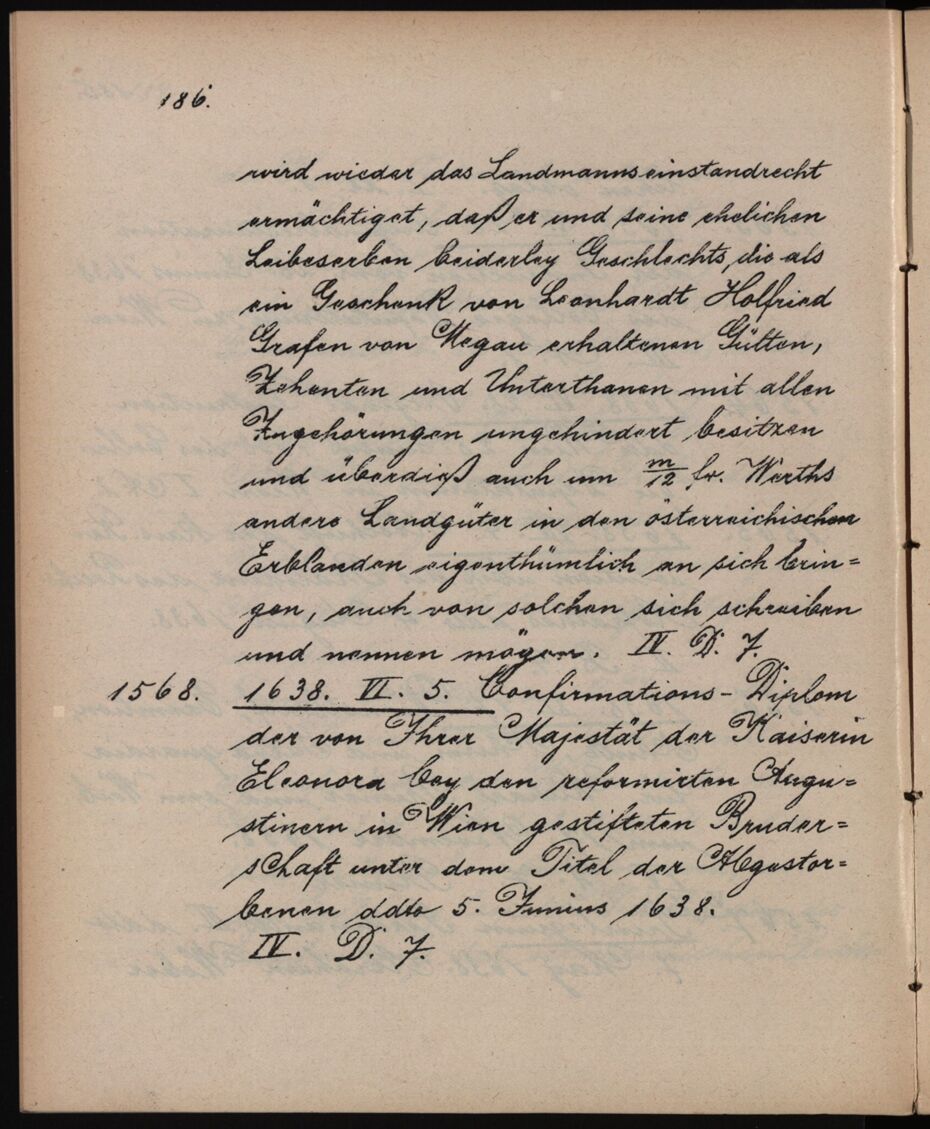 186.
wird wieder das Landmannseinstandrecht
ermächtiget, daß er und seine ehelichen
Leibeserben beiderley Geschlechts, die als
ein Geschenk von Leonhardt Holfried
Grafen von Megau erhaltenen Gülten,
Zehenten und Unterthanen mit allen
Zugehörungen ungehindert besitzen
und überdieß auch um m/12 fr. Werths
andere Landgüter in den österreichischen
Erblanden eigenthümlich an sich brin=
gen, auch von solchen sich schreiben
und nennen mögen. IV. D. 7.
1568. 1638. VI. 5. Confirmations-Diplom
der von Ihrer Majestät der Kaiserin
Eleonora bey den reformirten Augu=
stinern in Wien gestifteten Bruder=
schaft unter dem Titel der Abgestor=
benen ddto 5. Junius 1638.
IV. D. 7.